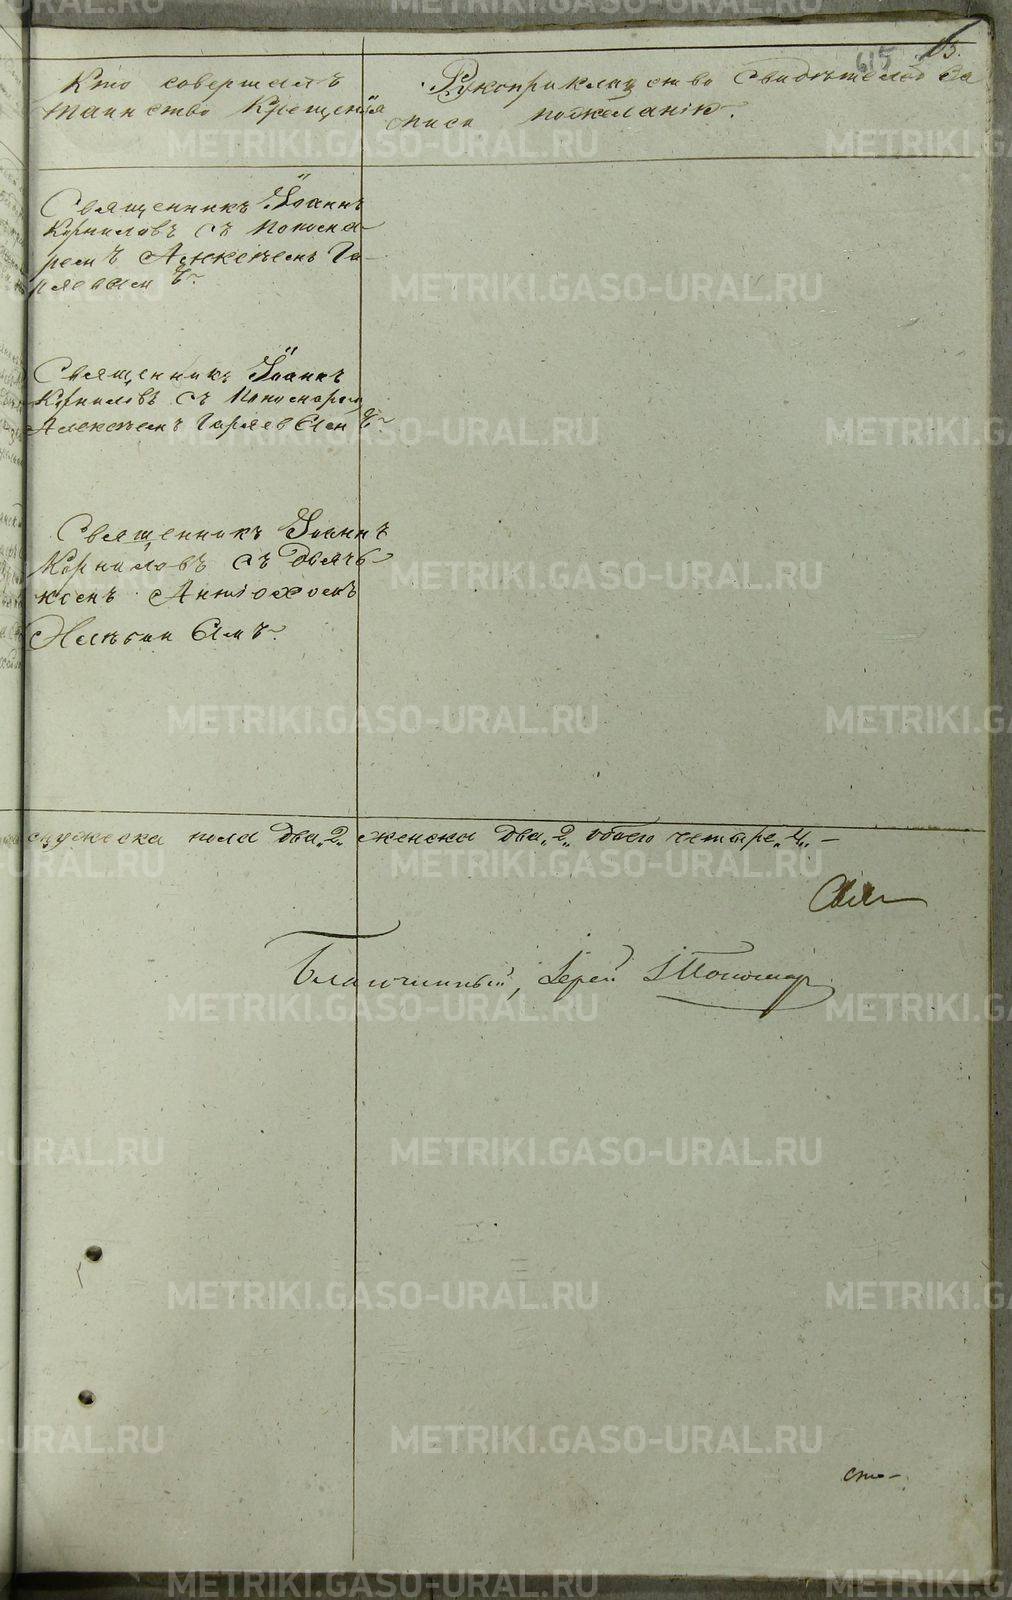 615
Кто совершалъ
таинство Крещенія
Рукоприкладство свидѣтелей за
писи по желанію.
Священникъ Іоаннъ
Корниловъ съ понома
ремъ Алексѣемъ Га
ряевымъ
Священникъ Іоаннъ
Корниловъ съ пономаремъ
Алексѣемъ Гаряевымъ
Священникъ Іоаннъ
Корниловъ съ дьяч
комъ Антіохомъ
мужеска пола два „2„ женска два „2„ обоего четыре „4„
Свя
Благочинный, Іерей
METRIKI.GASO-URAL.RU